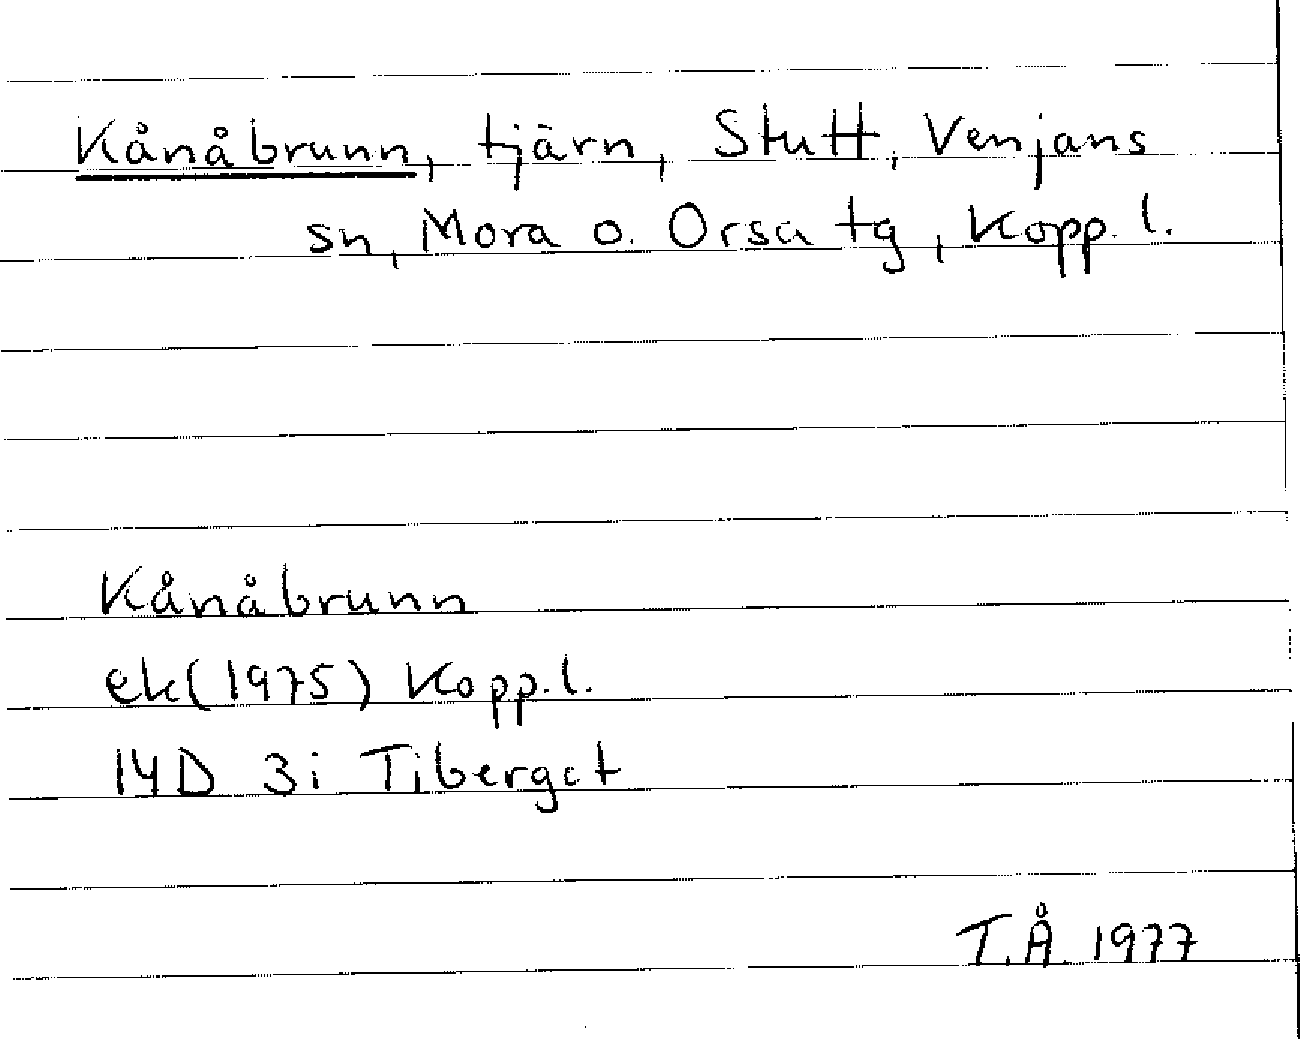 Kånåbrunn, tjärn, Stutt, Venjans
sn, Mora o. Orsa tg, Kopp. l.
Kånåbrunn
ek(1975) Kopp. l.
14D 3i Tibergat
T.Å. 1977